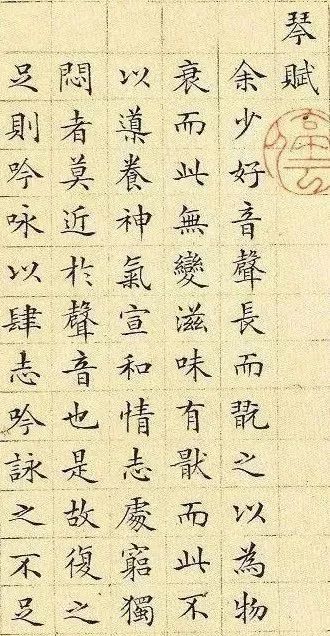 琴賦
余少好音聲長而翫之以為物
衰而此無變滋味有猒而此不
以導養神氣宣和情志處窮獨
悶者莫近於聲音也是故復之
足則吟咏以肆志吟詠之不足